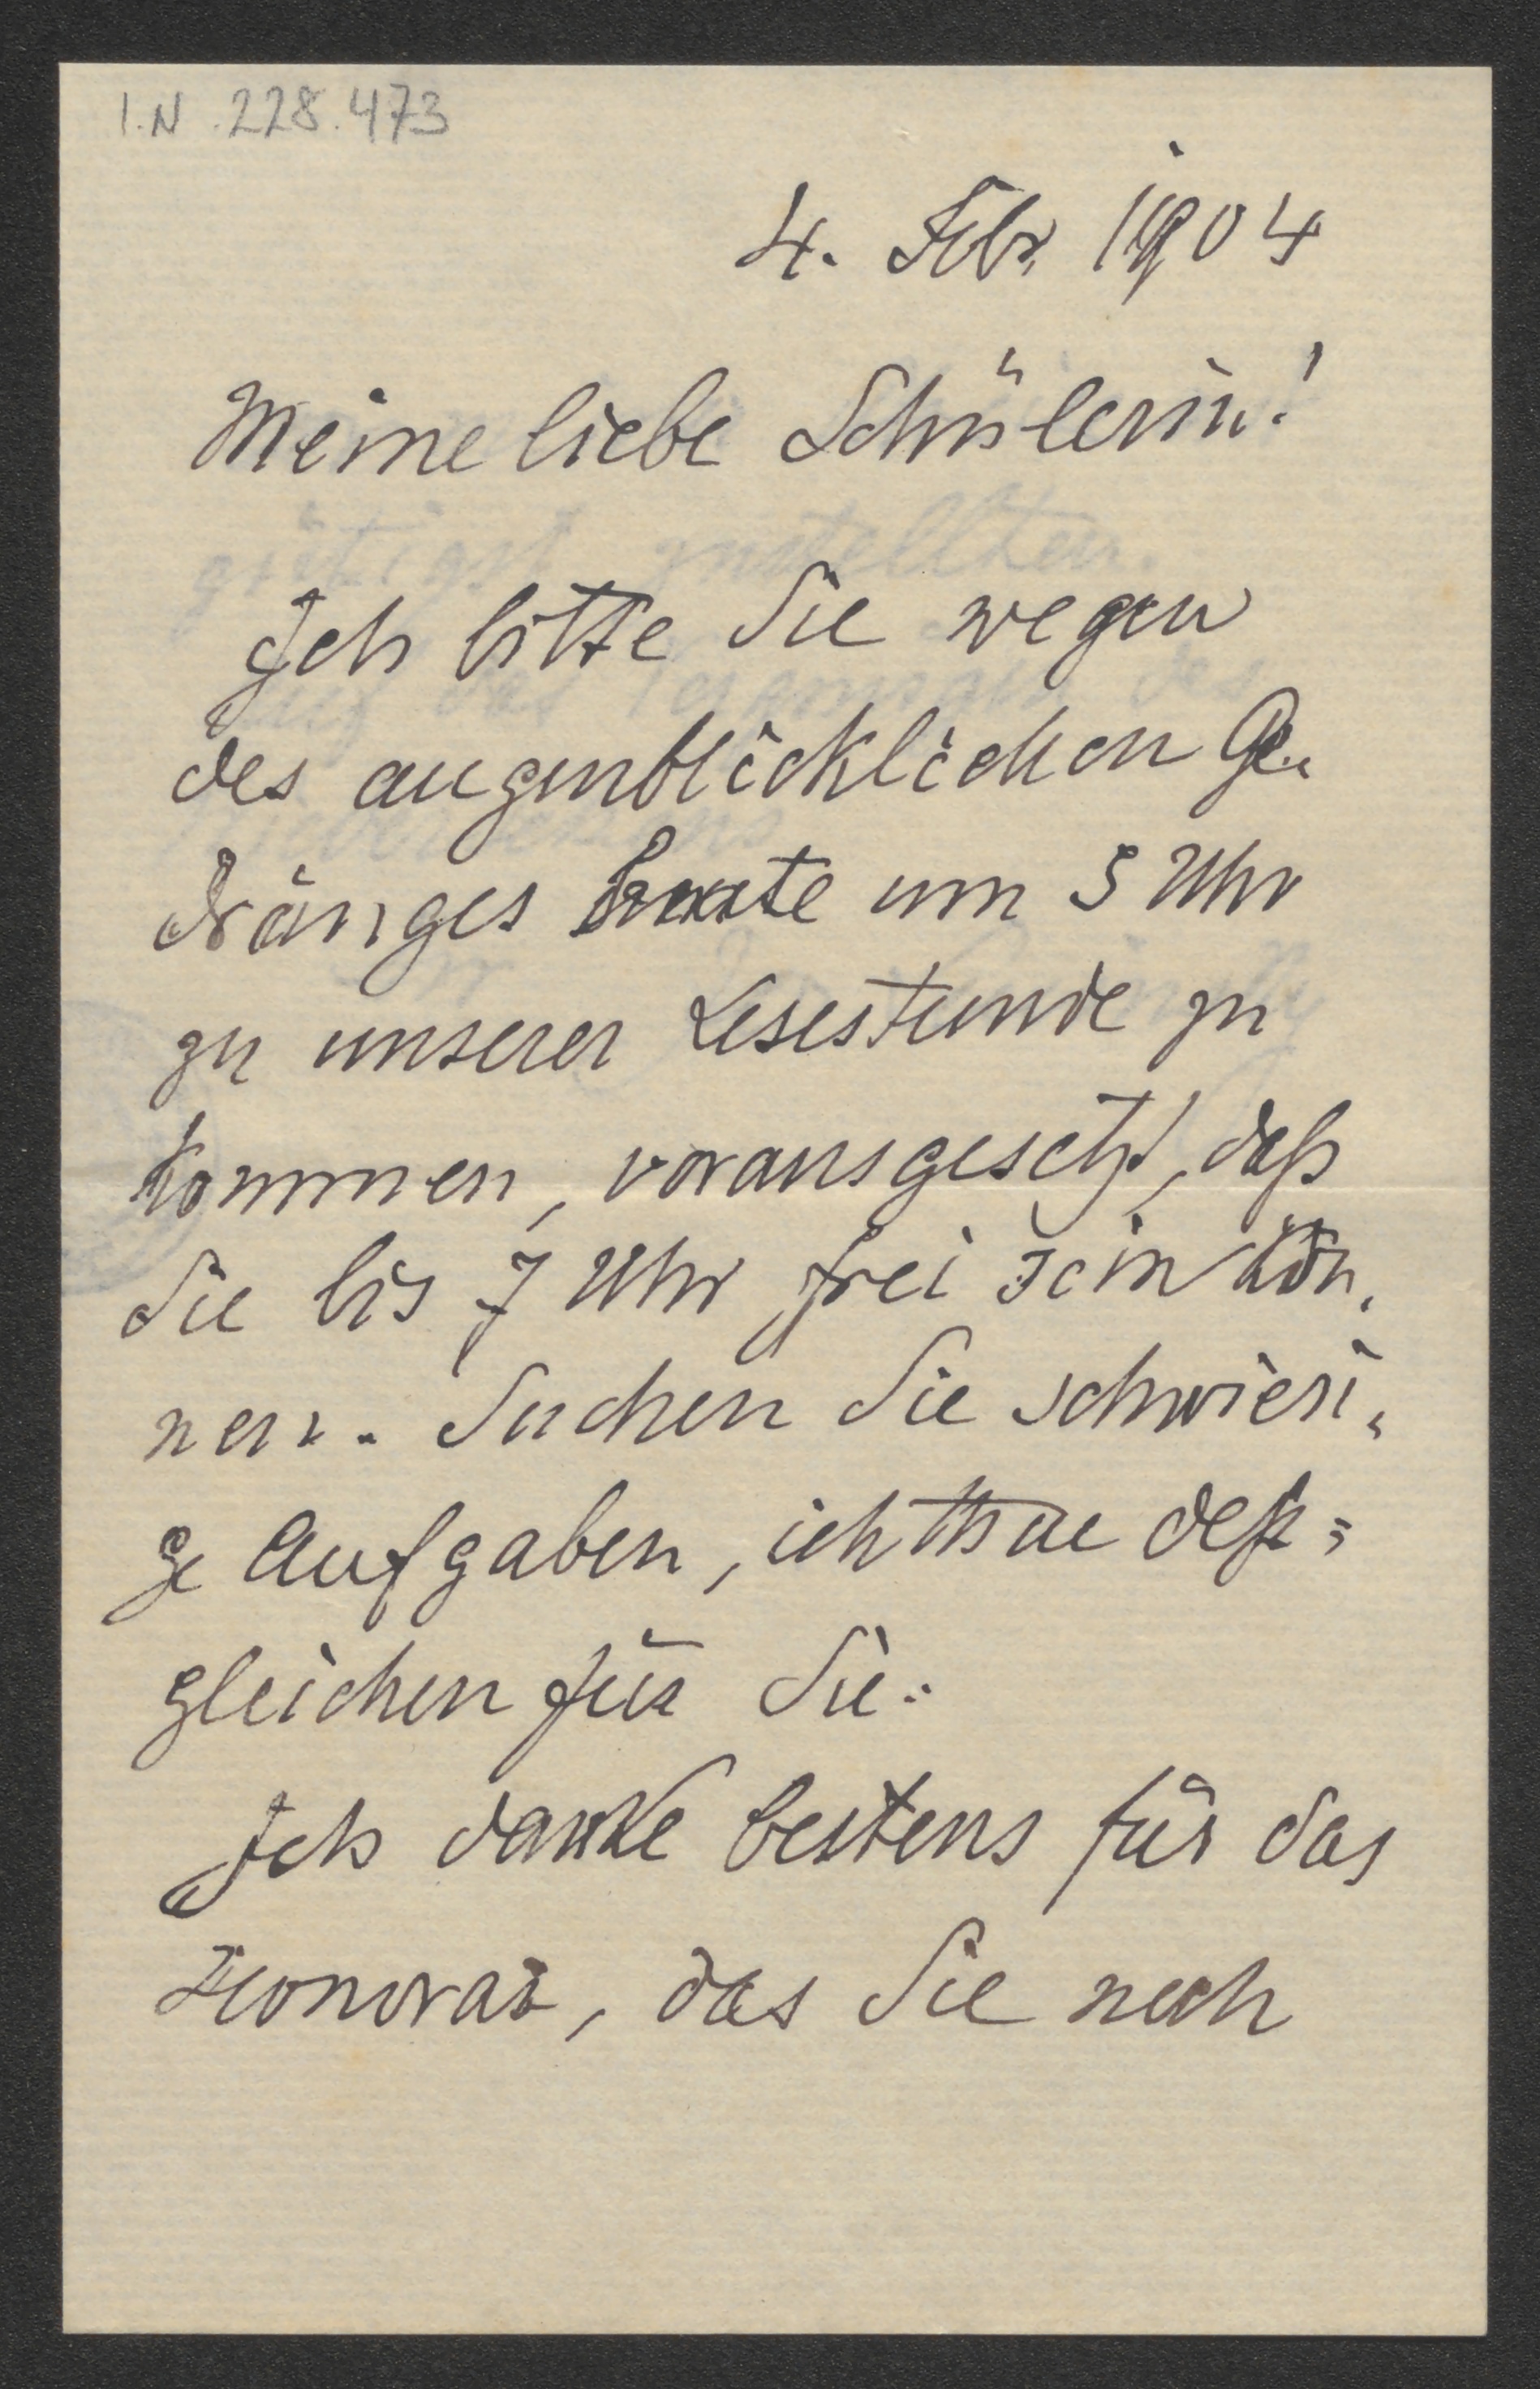 I.N.228.473
4. Febr. 1904
Meine liebe Schülerin!
Ich bitte Sie wegen
des augenblicklichen Ge-
dränges heute um 5 Uhr
zu unserer Lesestunde zu
kommen, vorausgesetzt, daß
Sie bis 7 Uhr frei sein kön-
nen. Suchen Sie schwieri-
ge Aufgaben, ich thue deß=
gleichen für Sie.
Ich danke bestens für das
Honorar, das Sie noch